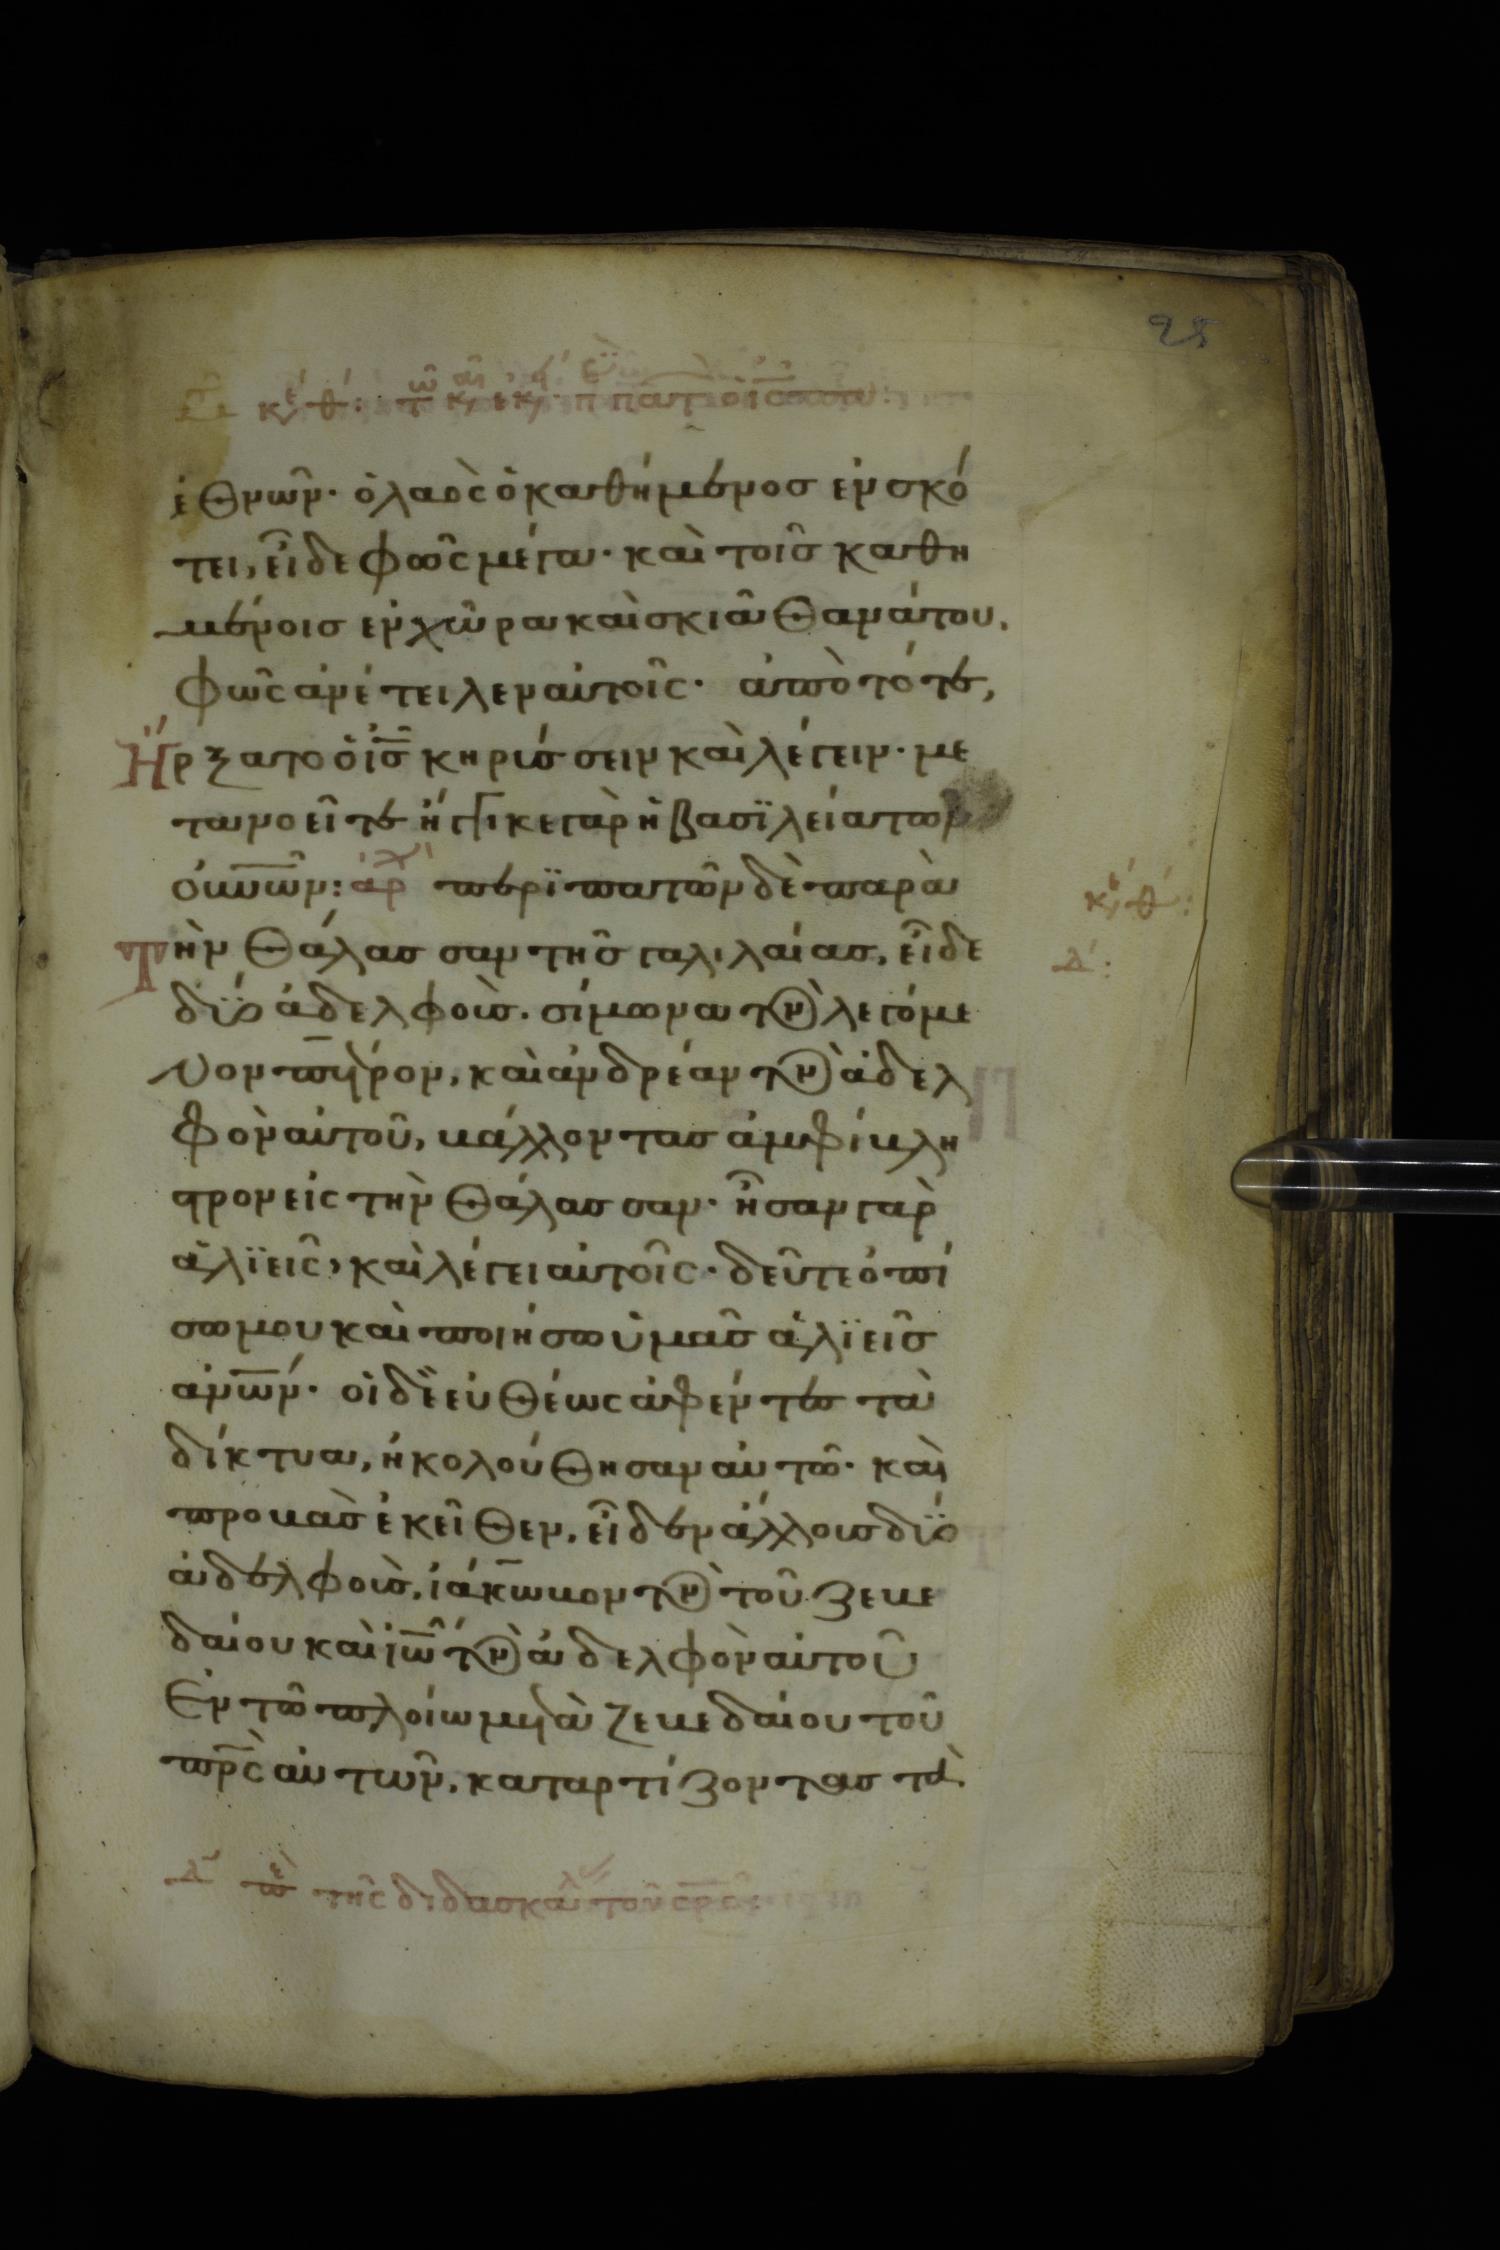 25
ἐθνῶν· ὁ λαὸς ὁ καθήμενος ἐν σκό
τει, εἶδε φῶς μέγα· καὶ τοῖς καθη
μένοις ἐν χώρα καὶ σκιᾶ θανάτου,
φῶς ἀνέτειλεν αὐτοῖς· ἀπὸ τότε,
Ἤρξατο ὁ ι̅ς̅ κηρύσσειν καὶ λέγειν· με
τανοεῖτε ἤγγικε γὰρ ἡ βασϊλεία τῶν
ο̅υ̅ν̅ῶν: ἀρχ περϊπατῶν δὲ παρὰ
κε θ:
Τὴν θάλασσαν τῆς γαλιλαίας, εἶδε
δ:
δύο ἀδελφοὺς· σίμωνα τὸν λεγόμε
νον πέτρον, καὶ ἀνδρέαν τὸν ἀδελ
φὸν αὐτοῦ, βάλλοντας ἀμφίβλη
στρον εἰς τὴν θάλασσαν· ἦσαν γὰρ
ἁλϊεῖς, καὶ λέγει αὐτοῖς· δεῦτε ὀπί
σω μου καὶ ποιήσω ὑμᾶς ἁλϊεῖς
α̅ν̅ω̅ν· οἱ δὲ εὐθέως ἀφέντες τὰ
δίκτυα, ἠκολούθησαν αὐτῶ· καὶ
προβὰς ἐκεῖθεν, εἶδεν ἄλλους δύο
ἀδελφοὺς, ἰάκωβον τὸν τοῦ ζεβε
δαίου καὶ ἰ̅ω̅ τὸν ἀδελφὸν αὐτοῦ
Ἐν τῶ πλοίω μετὰ ζεβεδαίου τοῦ
π̅ρ̅ς αὐτῶν, καταρτίζοντας τὰ
τῆς διδασκαλ τοῦ σρς